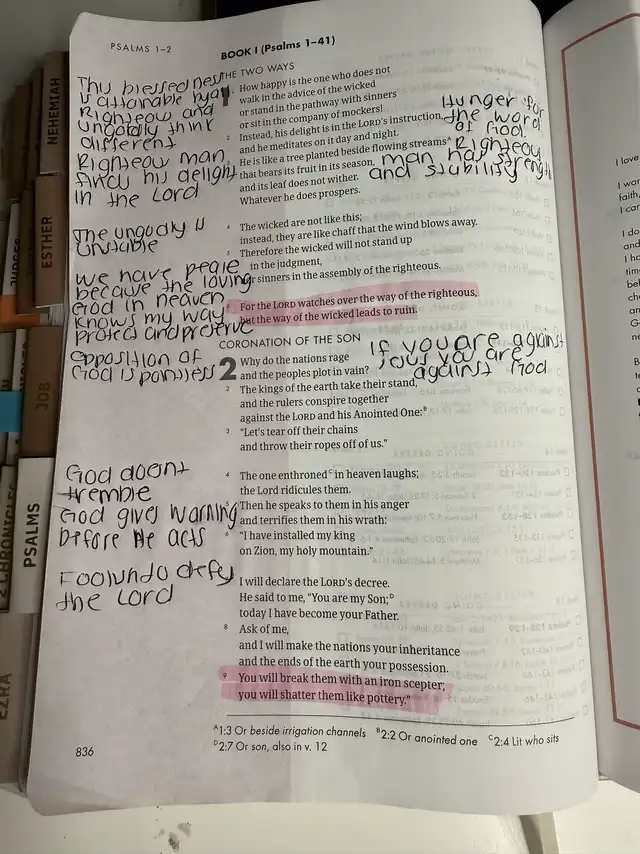 PSALMS 1–2
BOOK I (Psalms 1–41)
THE TWO WAYS
1 How happy is the one who does not
walk in the advice of the wicked
or stand in the pathway with sinners
or sit in the company of mockers!
2 Instead, his delight is in the LORD's instruction,
and he meditates on it day and night.
3 He is like a tree planted beside flowing streams^A
that bears its fruit in its season,
and its leaf does not wither.
Whatever he does prospers.
4 The wicked are not like this;
instead, they are like chaff that the wind blows away.
5 Therefore the wicked will not stand up
in the judgment,
nor sinners in the assembly of the righteous.
6 For the LORD watches over the way of the righteous,
but the way of the wicked leads to ruin.
CORONATION OF THE SON
2 Why do the nations rage
and the peoples plot in vain?
2 The kings of the earth take their stand,
and the rulers conspire together
against the LORD and his Anointed One:^B
3 "Let's tear off their chains
and throw their ropes off of us."
4 The one enthroned^C in heaven laughs;
the Lord ridicules them.
5 Then he speaks to them in his anger
and terrifies them in his wrath:
6 "I have installed my king
on Zion, my holy mountain."
I will declare the LORD's decree.
He said to me, "You are my Son;^D
today I have become your Father.
8 Ask of me,
and I will make the nations your inheritance
and the ends of the earth your possession.
9 You will break them with an iron scepter;
you will shatter them like pottery."
^A1:3 Or beside irrigation channels ^B2:2 Or anointed one ^C2:4 Lit who sits
^D2:7 Or son, also in v. 12
836
This blessedness
is attainable
Righteou and
ungodly think
different
Righteou man
finds his delight
in the Lord
The ungodly is
unstable
we have peace
because the loving
God in heaven
knows my way
protect and preserve
opposition of
God is pointless
God doesnt
tremble
God gives warning
before He acts
to defy
the Lord
Hunger for
the word
of God.
Righteou
man has strength
and stability
If you are against
you are
against God
NEHEMIAH
ESTHER
JOB
PSALMS
2 CHRONICLES
EZRA
JUDGES
I love
I wan
faith,
I can
I do
and